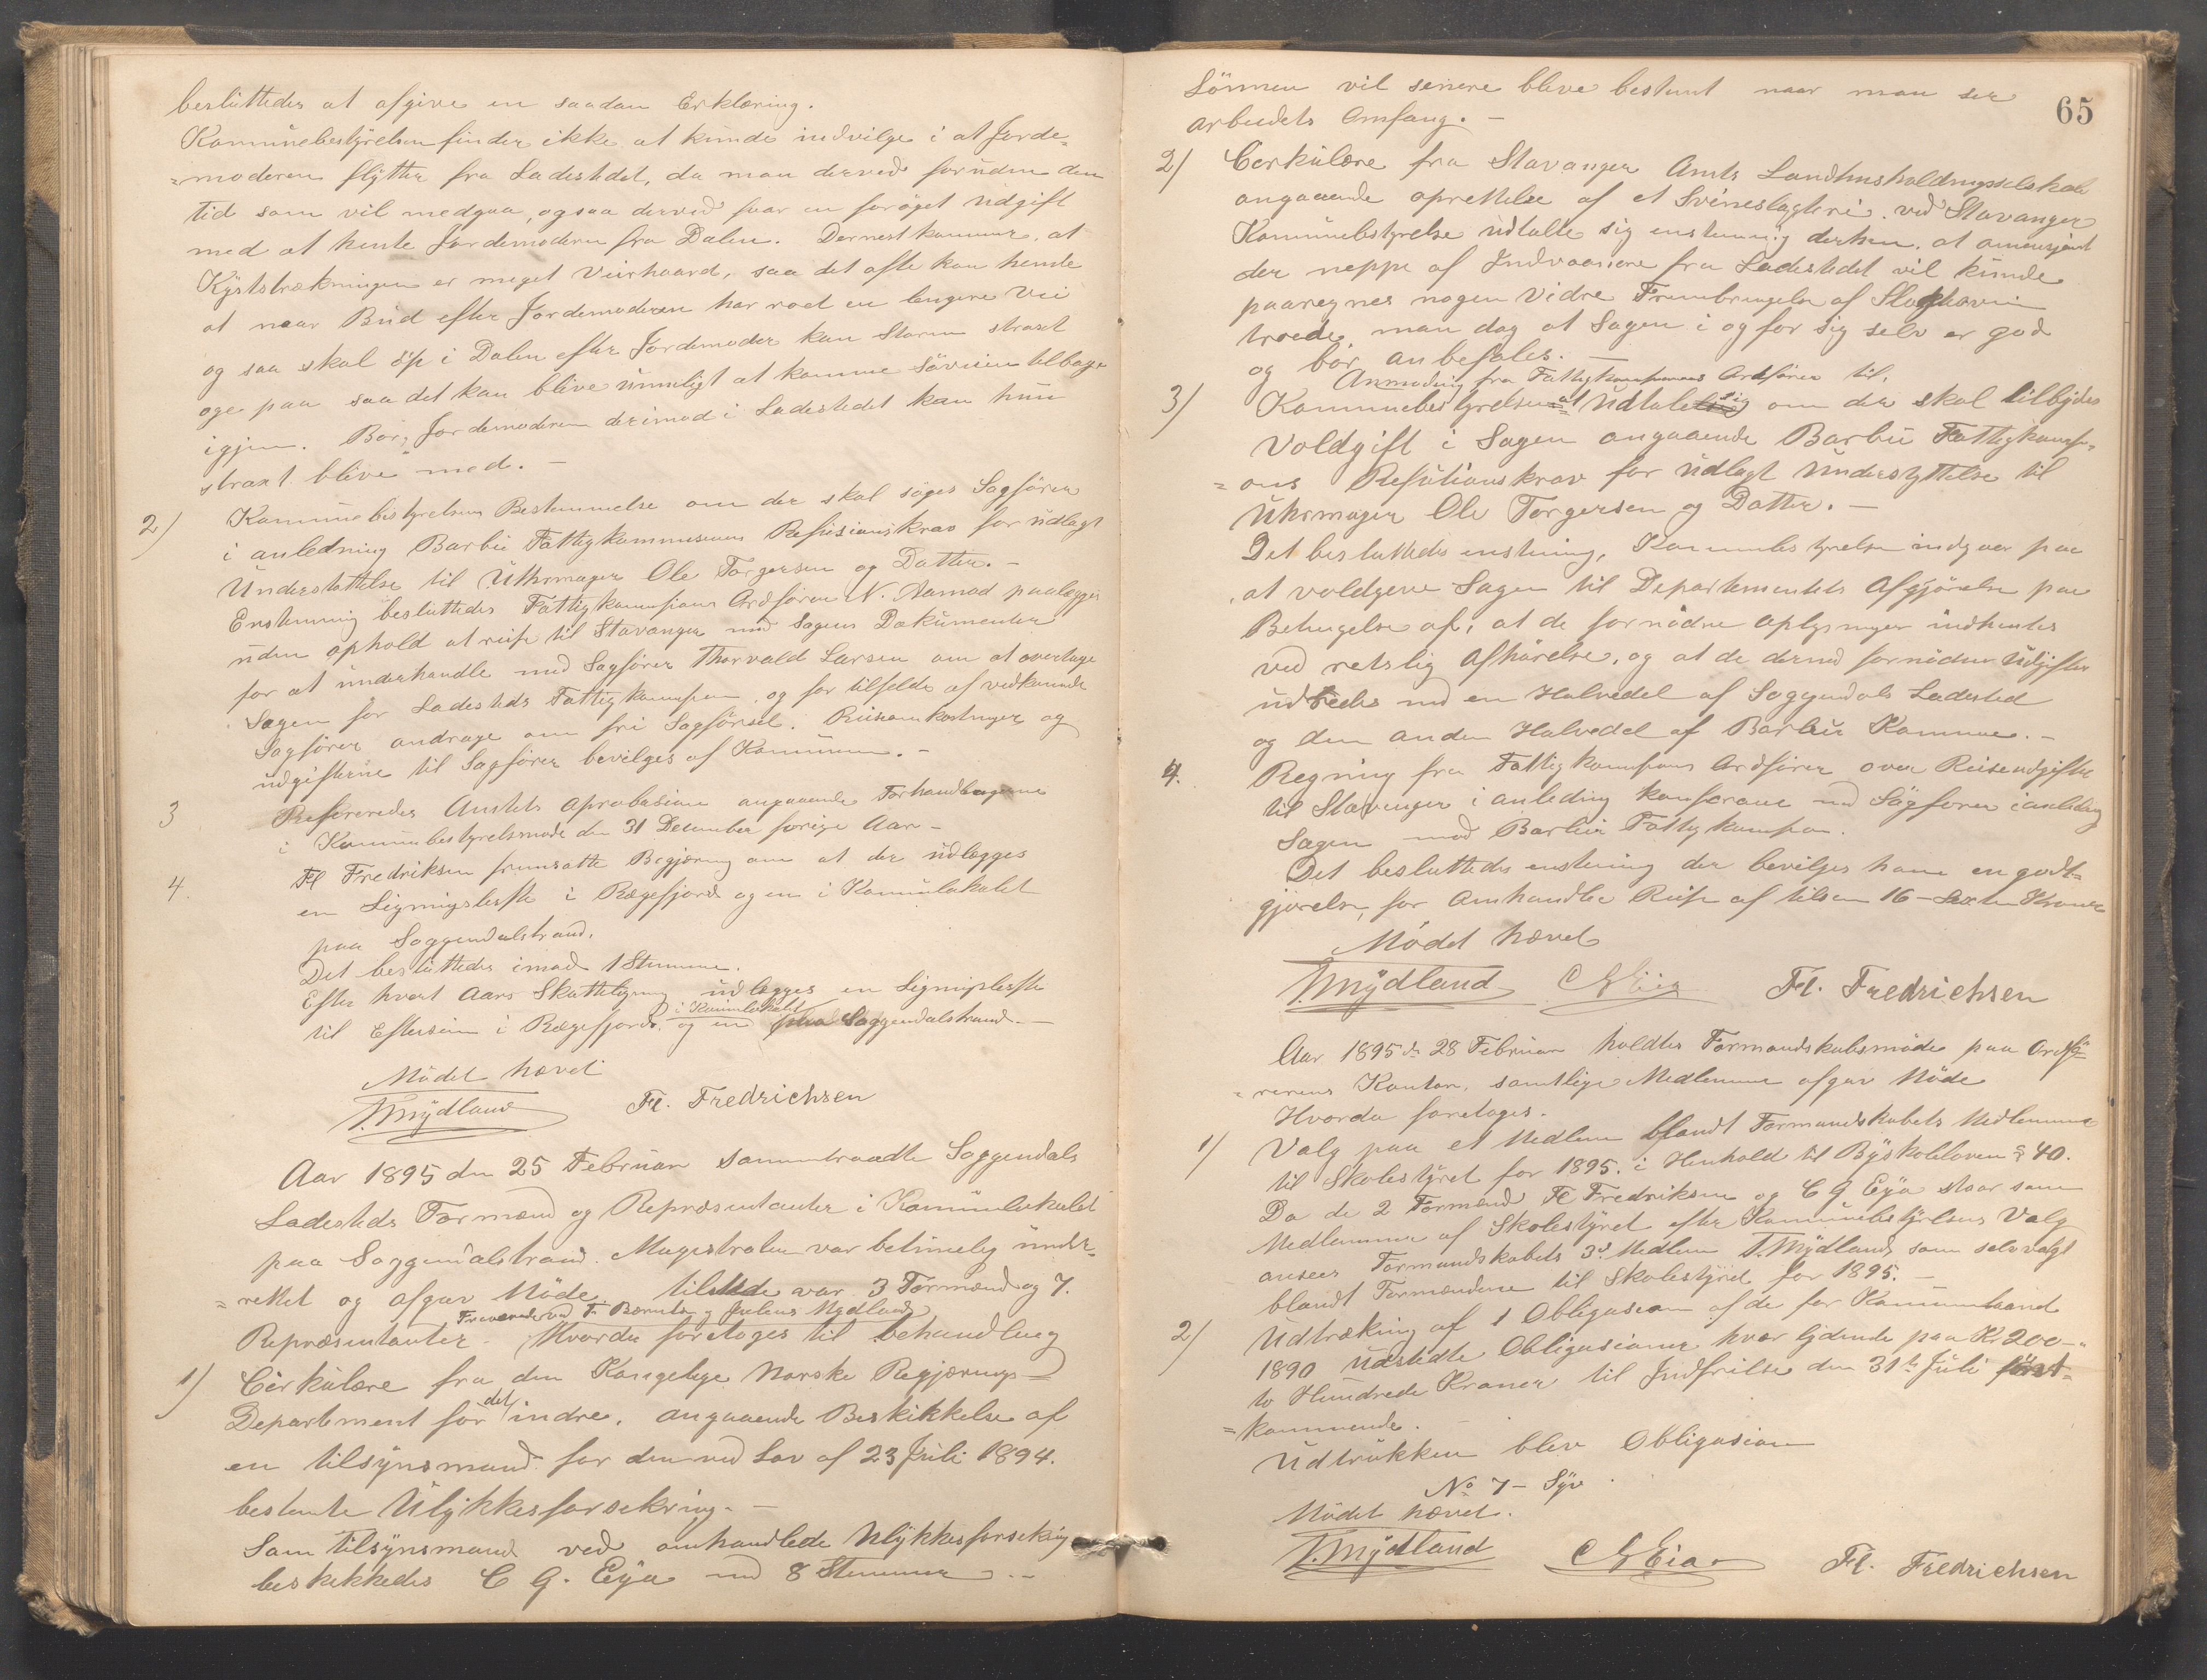 besluttedes at afgive en saadan Erklæring.
Kommunebestyrelsen finder ikke at kunde indvilge i at Jorde-
=moderen flytter fra Ladestedet, da man derved foruden den
tid som vil medgaa, ogsaa derved faar en forøget Udgift
med at hente Jordemoderen fra Dalen. Dernest kommer, at
Kyststrækningen er meget Veirhaard, saa det ofte kan hende
at naar Bud efter Jordemoderen har roet en lengere Vei
og saa skal op i Dalen efter Jordemoder kan Storm straxt
øge paa saa det kan blive umuligt at komme Søveien tilbage
igjen. Bor Jordemoderen derimod i Ladestedet kan hun
straxt blive med. –
2) Kommunebestyrelsens Bestemmelse om der skal søges Sagfører
i anledning Barbu Fattigkommissions Refusionskrav for udlagt
Understøttelse til Uhrmager Ole Torgersen og Datter. –
Enstemmig besluttedes Fattigkommissions Ordfører N. Aamod paalægges
uden ophold at reise til Stavanger med Sagens Dokumenter
for at underhandle med Sagfører Thorvald Larsen om at overtage
Sagen for Ladesteds Fattigkommission og for tilfelde af vedkommende
Sagfører andrage om fri Sagførsel. Reiseomkostninger og
udgifterne til Sagfører bevilges af Kommunen. –
3 Refereredes Amtets Aprobasion angaaende Forhandlingerne
i Kommunebestyrelsesmøde den 31 December forige Aar –
4. Fl Fredriksen fremsatte Begjæring om at der udlægges
en Ligningsliste i Rægefjord og en i Komunelokalet
paa Soggendalstrand.
Det besluttedes imod 1 Stemme.
Efter hvert Aars Skatteligning udlægges en Ligningsliste
til Eftersyn i Rægefjord, og en i Komunlokalet paa Soggendalstrand. –
Mødet hævet
T. Mydland Fl. Fredrichsen
Aar 1895 den 25 Februar sammentraadte Soggendals
Ladesteds Formænd og Repræsentanter i Komunelokalet
paa Soggendalstrand. Magistraten var betimelig under-
=rettet og afgav Møde. tilstede var 3 Formænd og 7.
Repræsentanter. Hvorda foretoges til behandling
1) Cirkulære fra den Kongelige Norske Regjerings-
Departement for det indre, angaaende Beskikkelse af
en tilsynsmand for den ved Lov af 23 Juli 1894.
bestemte Ulykkesforsekring. –
Som tilsynsmand ved omhandlede Ulykkesforsekring
beskikkedes C G. Eya med 8 Stemmer. –
65
Lønnen vil senere blive bestemt naar man ser
arbeidets Omfang. –
2) Cerkulære fra Stavanger Amts Landhusholdingsselskab
angaaende oprettelse af et Svineslagteri ved Stavanger
Kommunebestyrelse udtalte sig enstemmig derhen, at
der neppe af Indvaanere fra Ladestedet vil kunde
paaregnes nogen Vidre Frembringelse af Slagtesvin
troede man dog at Sagen i og for sig selv er god
og bør anbefales. –
3) Anmodning fra Fattigkommissions Ordfører til,
Kommunebestyrelsen at Udtale sig om der skal tilbydes
Voldgift i Sagen angaaende Barbu Fattigkomis-
=ons Refutionskrav for udlagt Understyttelse til
Uhrmager Ole Torgersen og Datter. –
Det besluttedes enstemig, Kommunebestyrelsen indgaar paa
at voldgive Sagen til Departementets Afgjørelse paa
Betingelse af, at de fornødne Oplysninger indhentes
ved retslig Afhørelse, og at de derved fornødne Udgifter
udredes med en Halvedel af Soggendals Ladested
og den anden Halvedel af Barbu Komune. –
4. Regning fra Fattigkommissions Ordfører over Reiseudgifter
til Stavanger i anledning konferanse med Sagfører i anledning
Sagen mod Barbu Fattigkomission.
Det besluttedes enstemig der bevilges ham en godt-
gjørelse, for Omhandlede Reise af tilsam 16 – Sexten Kroner
Mødet hævet
T. Mydland C G Eia Fl. Fredrichsen
Aar 1895 d. 28 Februar holdtes Formandskabsmøde paa Ordfø-
=rerens Kontor, samtlige Medlemmer afgav Møde
Hvorda foretoges.
1) Valg paa et Medlem blandt Formandskabets Medlemmer
til Skolestyret for 1895. i Henhold til Byskoleloven § 40.
Da de 2 Formænd Fl Fredriksen og C G Eya staar som
Medlemmer af Skolestyret efter Kommunebestyrelsens Valg
ansees Formandskabets 3d. Medlem T. Mydland som selvvalgt
blandt Formændene til Skolestyret for 1895. –
2) Udtræking af 1 Obligasion af de for Kommunelaand
1890 udstedte Obligasioner hver lydende paa Kr 200 –
to Hundrede Kroner til Indfrielse den 31te Juli først-
=kommende.
Udtrukken blev Obligasion
No 7 – Syv.
Mødet hævet.
T. Mydland C G Eia Fl. Fredrichsen